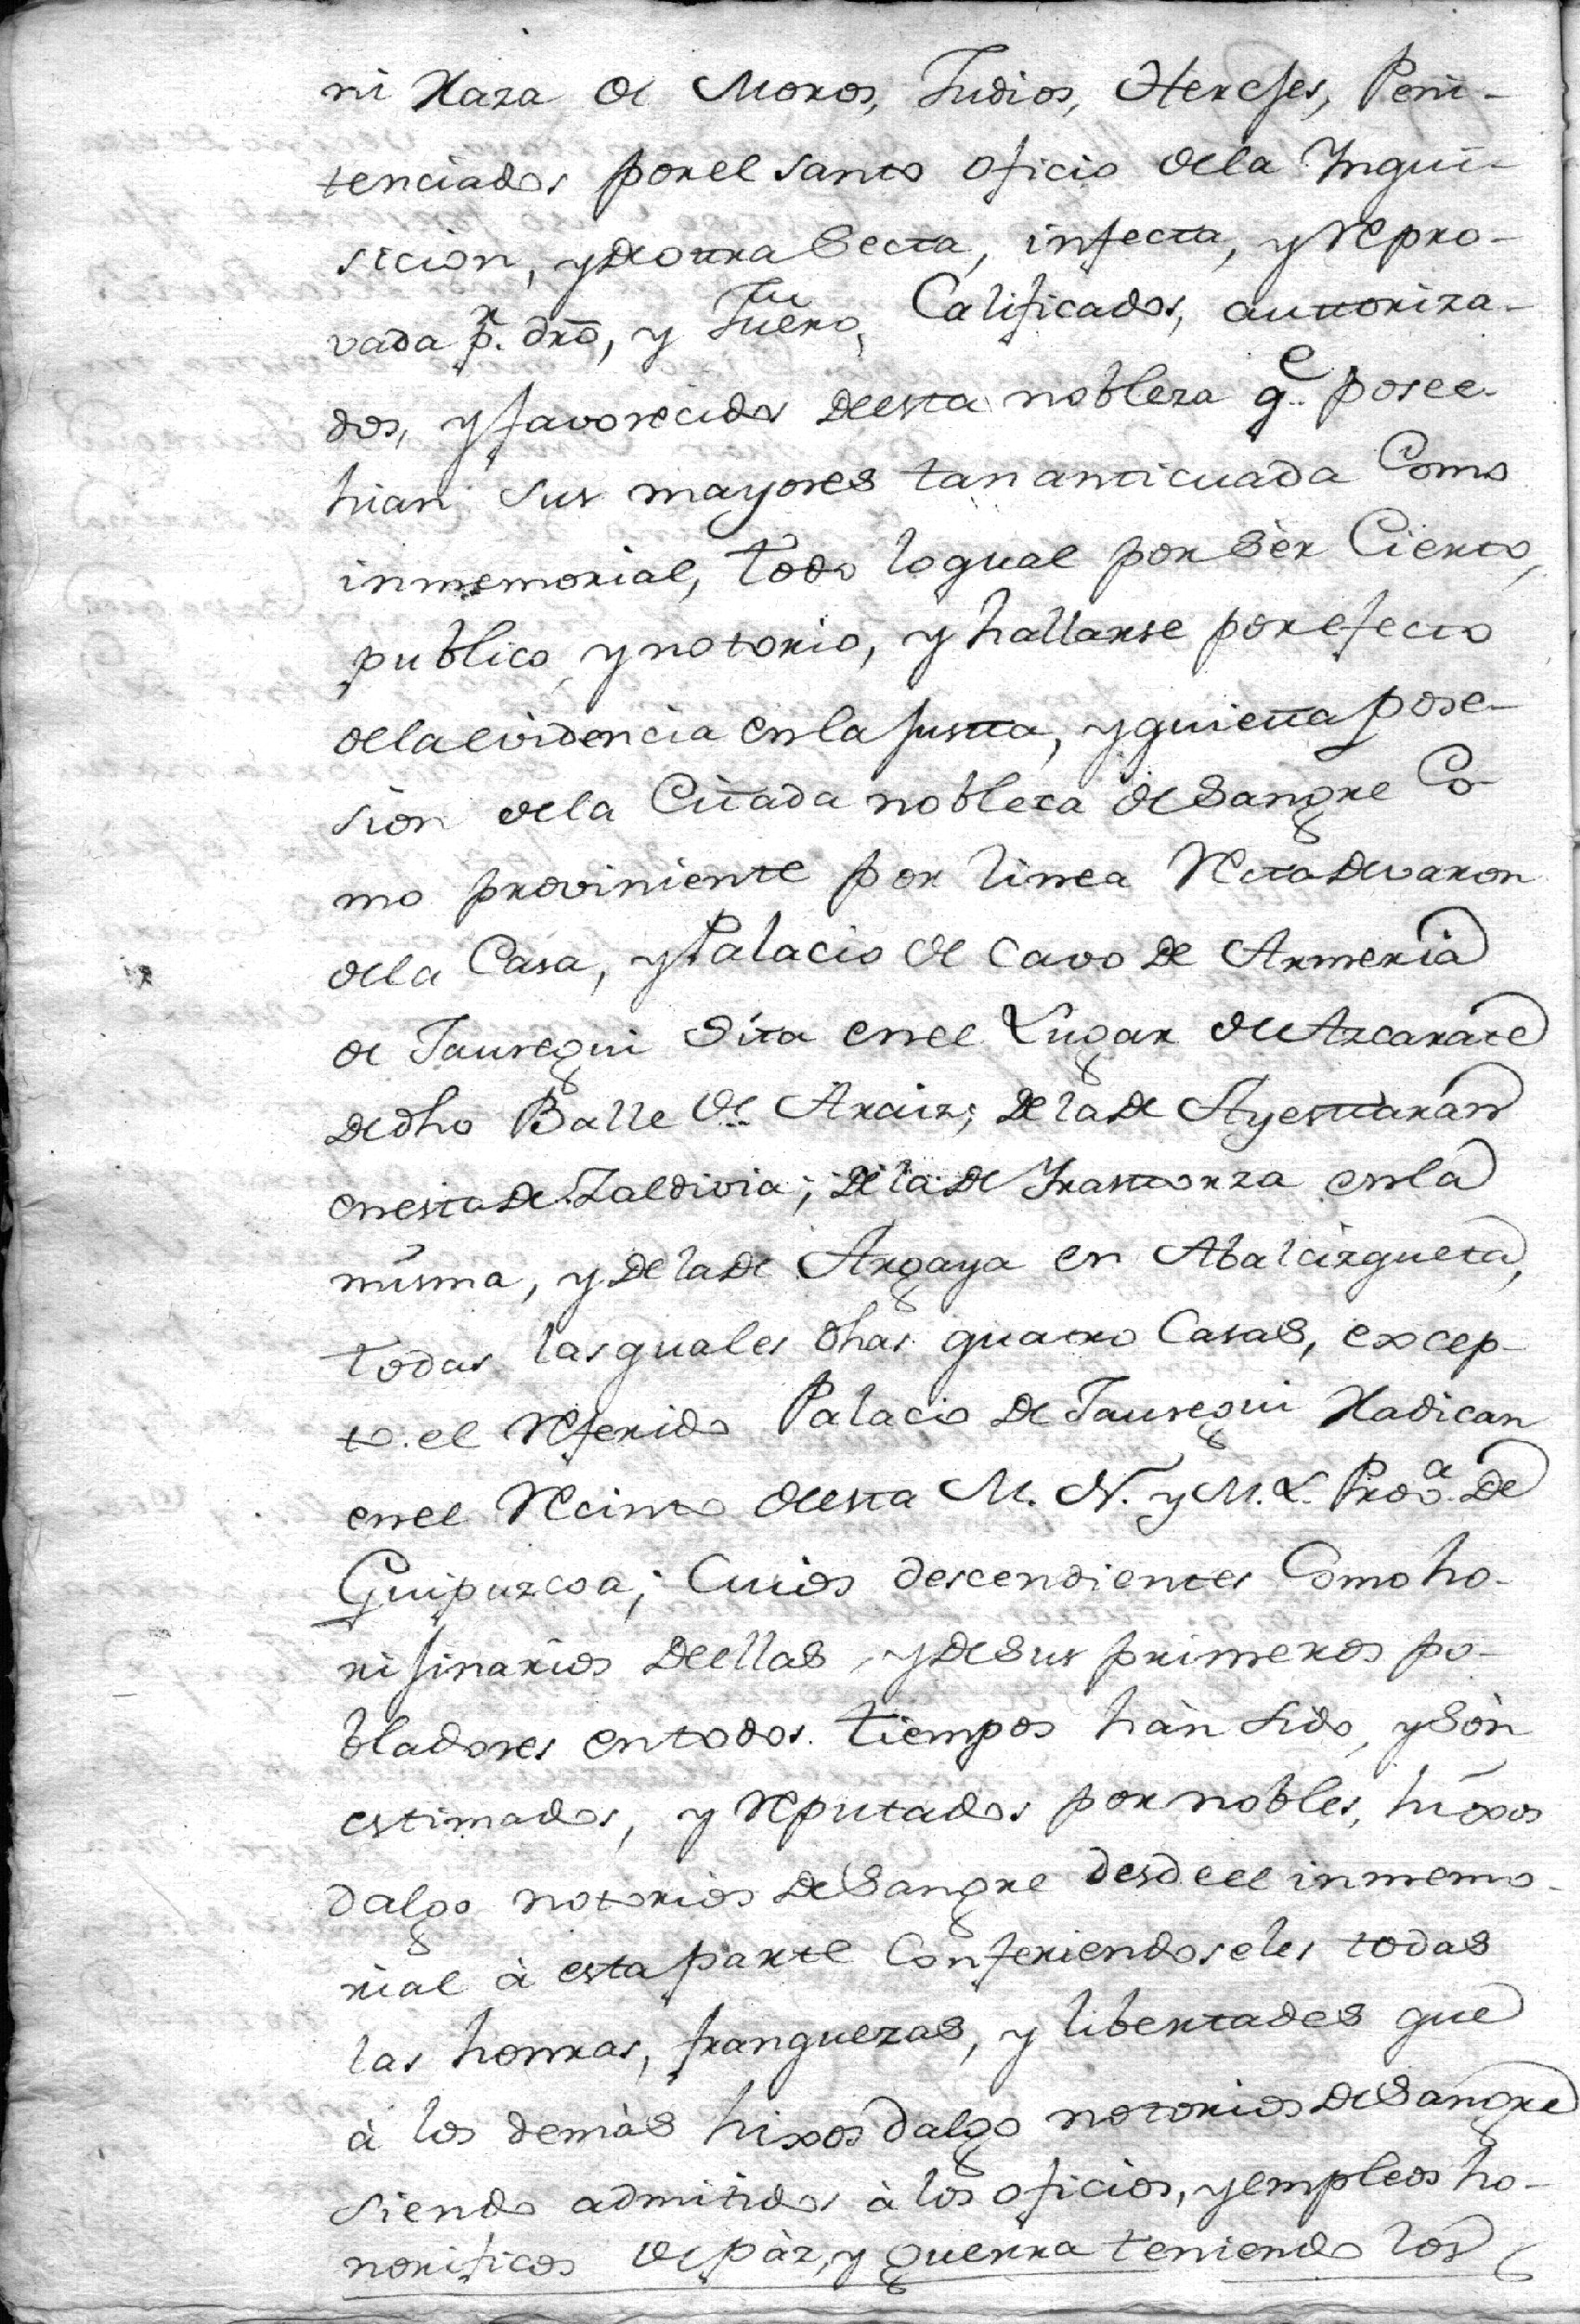 ni Raza de Moros, Judios, Herejes, Peni-
tenciados por el santo oficio dela Ynqui-
sicion, y de otra Secta, infecta, y repro-
vada pr. dro, y Fuero, Calificados, auttoriza-
dos, y favorecidos de esta nobleza qe. posee-
hian sus mayores tan anticuada Como
inmemorial, todo lo qual por sèr Cierto,
publico, y notorio, y hallarse por efecto
dela evidencia en la justta, y quietta pose-
sion dela Cittada nobleza de Sangre Co-
mo proviniente por linea recta de varon
dela Casa, y Palacio de Cavo de Armeria
de Jauregui Sita en el Lugar de Azcarate
de dho Balle de Araiz; de la de Ayesttaran
en esta de Zaldivia; de la de Yrastorza en la
misma, y de la de Argaya en Abalcizqueta,
todas las quales dhas quatro Casas, excep-
to el referido Palacio de Jauregui Radican
en el recinto de esta M. N. y M. L. Prova. de
Guipuzcoa; Cuios descendientes Como ho-
rijinarios de ellas, y de sus primeros po-
bladores en todos tiempos hàn sido, y sòn
estimados, y reputados por nobles, hixos
dalgo notorios de Sangre desde el inmemo-
rial à esta parte Confiriendoseles todas
las honrras, franquezas, y libertades que
à los demàs hixos dalgo notorios de Sangre
siendo admitidos à los oficios, y empleos ho-
norificos de pàz, y guerra teniendo los